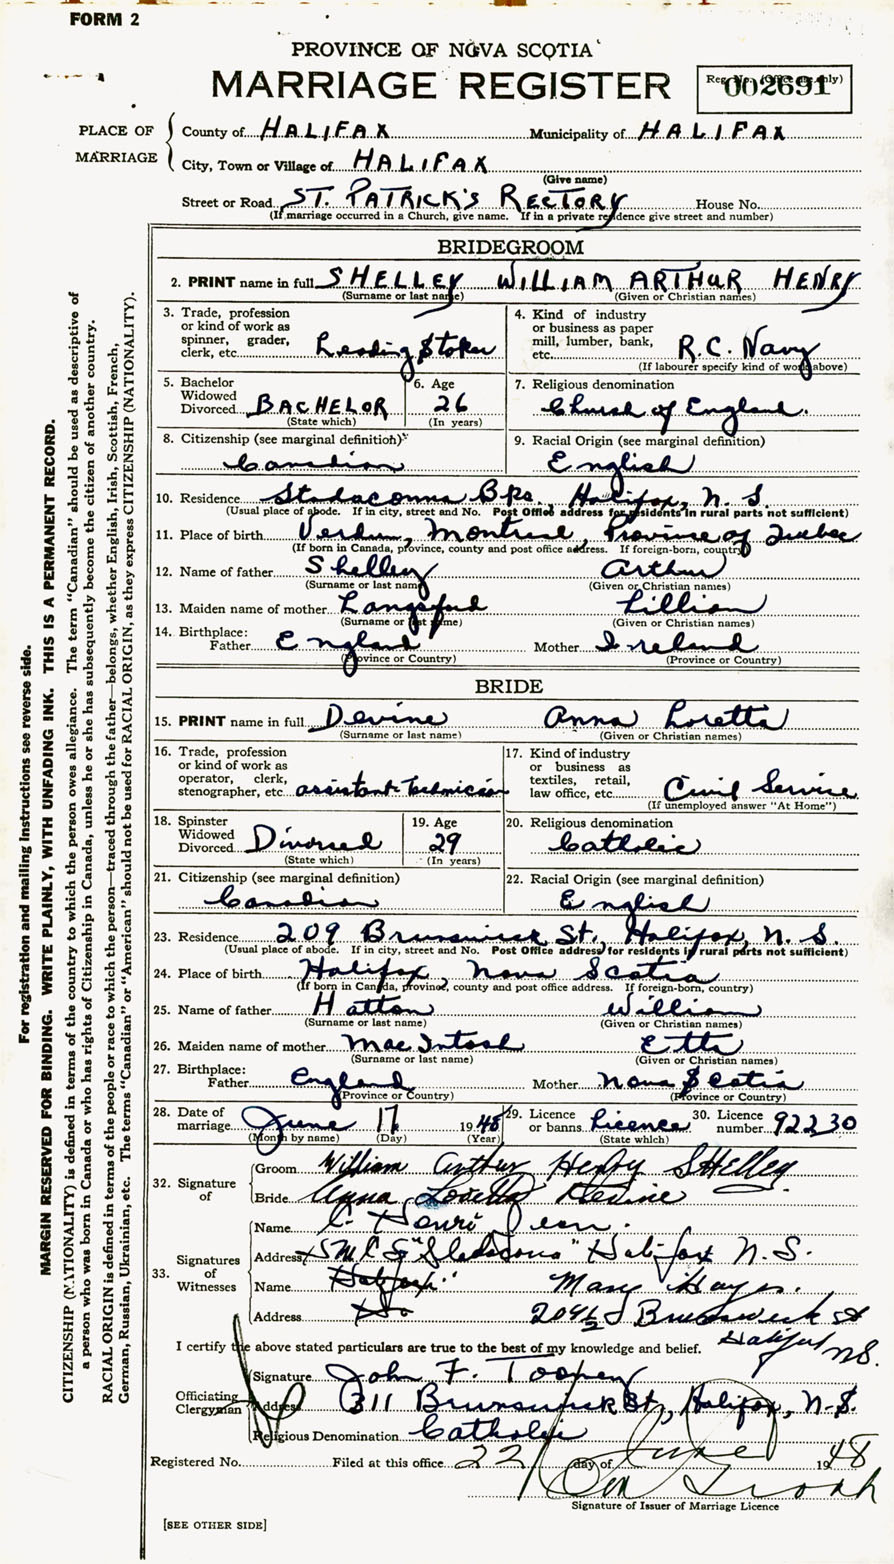 FORM 2
PROVINCE OF NOVA SCOTIA
MARRIAGE REGISTER
Reg. No. (Office use only)
002691
PLACE OF MARRIAGE
County of HALIFAX Municipality of HALIFAX
City, Town or Village of HALIFAX
(Give name)
Street or Road ST. PATRICK'S RECTORY House No.
(If marriage occurred in a Church, give name. If in a private residence give street and number)
BRIDEGROOM
2. PRINT name in full SHELLEY WILLIAM ARTHUR HENRY
(Surname or last name) (Given or Christian names)
3. Trade, profession or kind of work as spinner, grader, clerk, etc. Leading Stoker
4. Kind of industry or business as paper mill, lumber, bank, etc. R.C. Navy
(If labourer specify kind of work above)
5. Bachelor Widowed Divorced BACHELOR
(State which)
6. Age 26
(In years)
7. Religious denomination
Church of England.
8. Citizenship (see marginal definition)
Canadian
9. Racial Origin (see marginal definition)
English
10. Residence Stadaconna Bks. Halifax, N. S.
(Usual place of abode. If in city, street and No. Post Office address for residents in rural parts not sufficient)
11. Place of birth Verdun, Montreal, Province of Quebec
(If born in Canada, province, county and post office address. If foreign-born, country)
12. Name of father Shelley Arthur
(Surname or last name) (Given or Christian names)
13. Maiden name of mother Langsford Lillian
(Surname or last name) (Given or Christian names)
14. Birthplace:
Father England Mother Ireland
(Province or Country) (Province or Country)
BRIDE
15. PRINT name in full Devine Anna Loretta
(Surname or last name) (Given or Christian names)
16. Trade, profession or kind of work as operator, clerk, stenographer, etc. assistant-Technician
17. Kind of industry or business as textiles, retail, law office, etc. Civil Service
(If unemployed answer "At Home")
18. Spinster Widowed Divorced Divorsed
(State which)
19. Age 29
(In years)
20. Religious denomination
Catholic
21. Citizenship (see marginal definition)
Canadian
22. Racial Origin (see marginal definition)
English
23. Residence 209 Brunswick St., Halifax, N. S.
(Usual place of abode. If in city, street and No. Post Office address for residents in rural parts not sufficient)
24. Place of birth Halifax, Nova Scotia
(If born in Canada, province, county and post office address. If foreign-born, country)
25. Name of father Hatton William
(Surname or last name) (Given or Christian names)
26. Maiden name of mother MacIntosh Etta
(Surname or last name) (Given or Christian names)
27. Birthplace:
Father England Mother Nova Scotia
(Province or Country) (Province or Country)
28. Date of marriage June 17 1948
(Month by name) (Day) (Year)
29. Licence or banns Licence
(State which)
30. Licence number 92230
32. Signature of
Groom William Arthur Henry SHelley
Bride Anna Loretta Devine
33. Signatures of Witnesses
Name Henri Jean.
Address HMCS "Stadacona" Halifax N.S.
Name Halifax" Mary Hayes.
Address 209½ Brunswick St
Halifax NS.
I certify the above stated particulars are true to the best of my knowledge and belief.
Officiating Clergyman
Signature John F. Toomey
Address 311 Brunswick St, Halifax, N.S.
Religious Denomination Catholic
Registered No. Filed at this office 22 day of June 1948
Signature of Issuer of Marriage Licence
[SEE OTHER SIDE]
For registration and mailing instructions see reverse side.
MARGIN RESERVED FOR BINDING. WRITE PLAINLY, WITH UNFADING INK. THIS IS A PERMANENT RECORD.
CITIZENSHIP (NATIONALITY) is defined in terms of the country to which the person owes allegiance. The term "Canadian" should be used as descriptive of
a person who was born in Canada or who has rights of Citizenship in Canada, unless he or she has subsequently become the citizen of another country.
RACIAL ORIGIN is defined in terms of the people or race to which the person—traced through the father—belongs, whether English, Irish, Scottish, French,
German, Russian, Ukrainian, etc. The terms "Canadian" or "American" should not be used for RACIAL ORIGIN, as they express CITIZENSHIP (NATIONALITY).